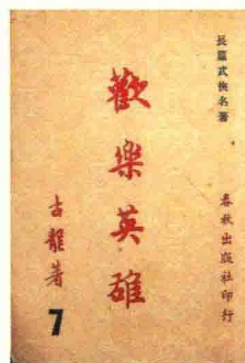 長篇武俠名著
歡樂英雄
古龍著
7
春秋出版社印行